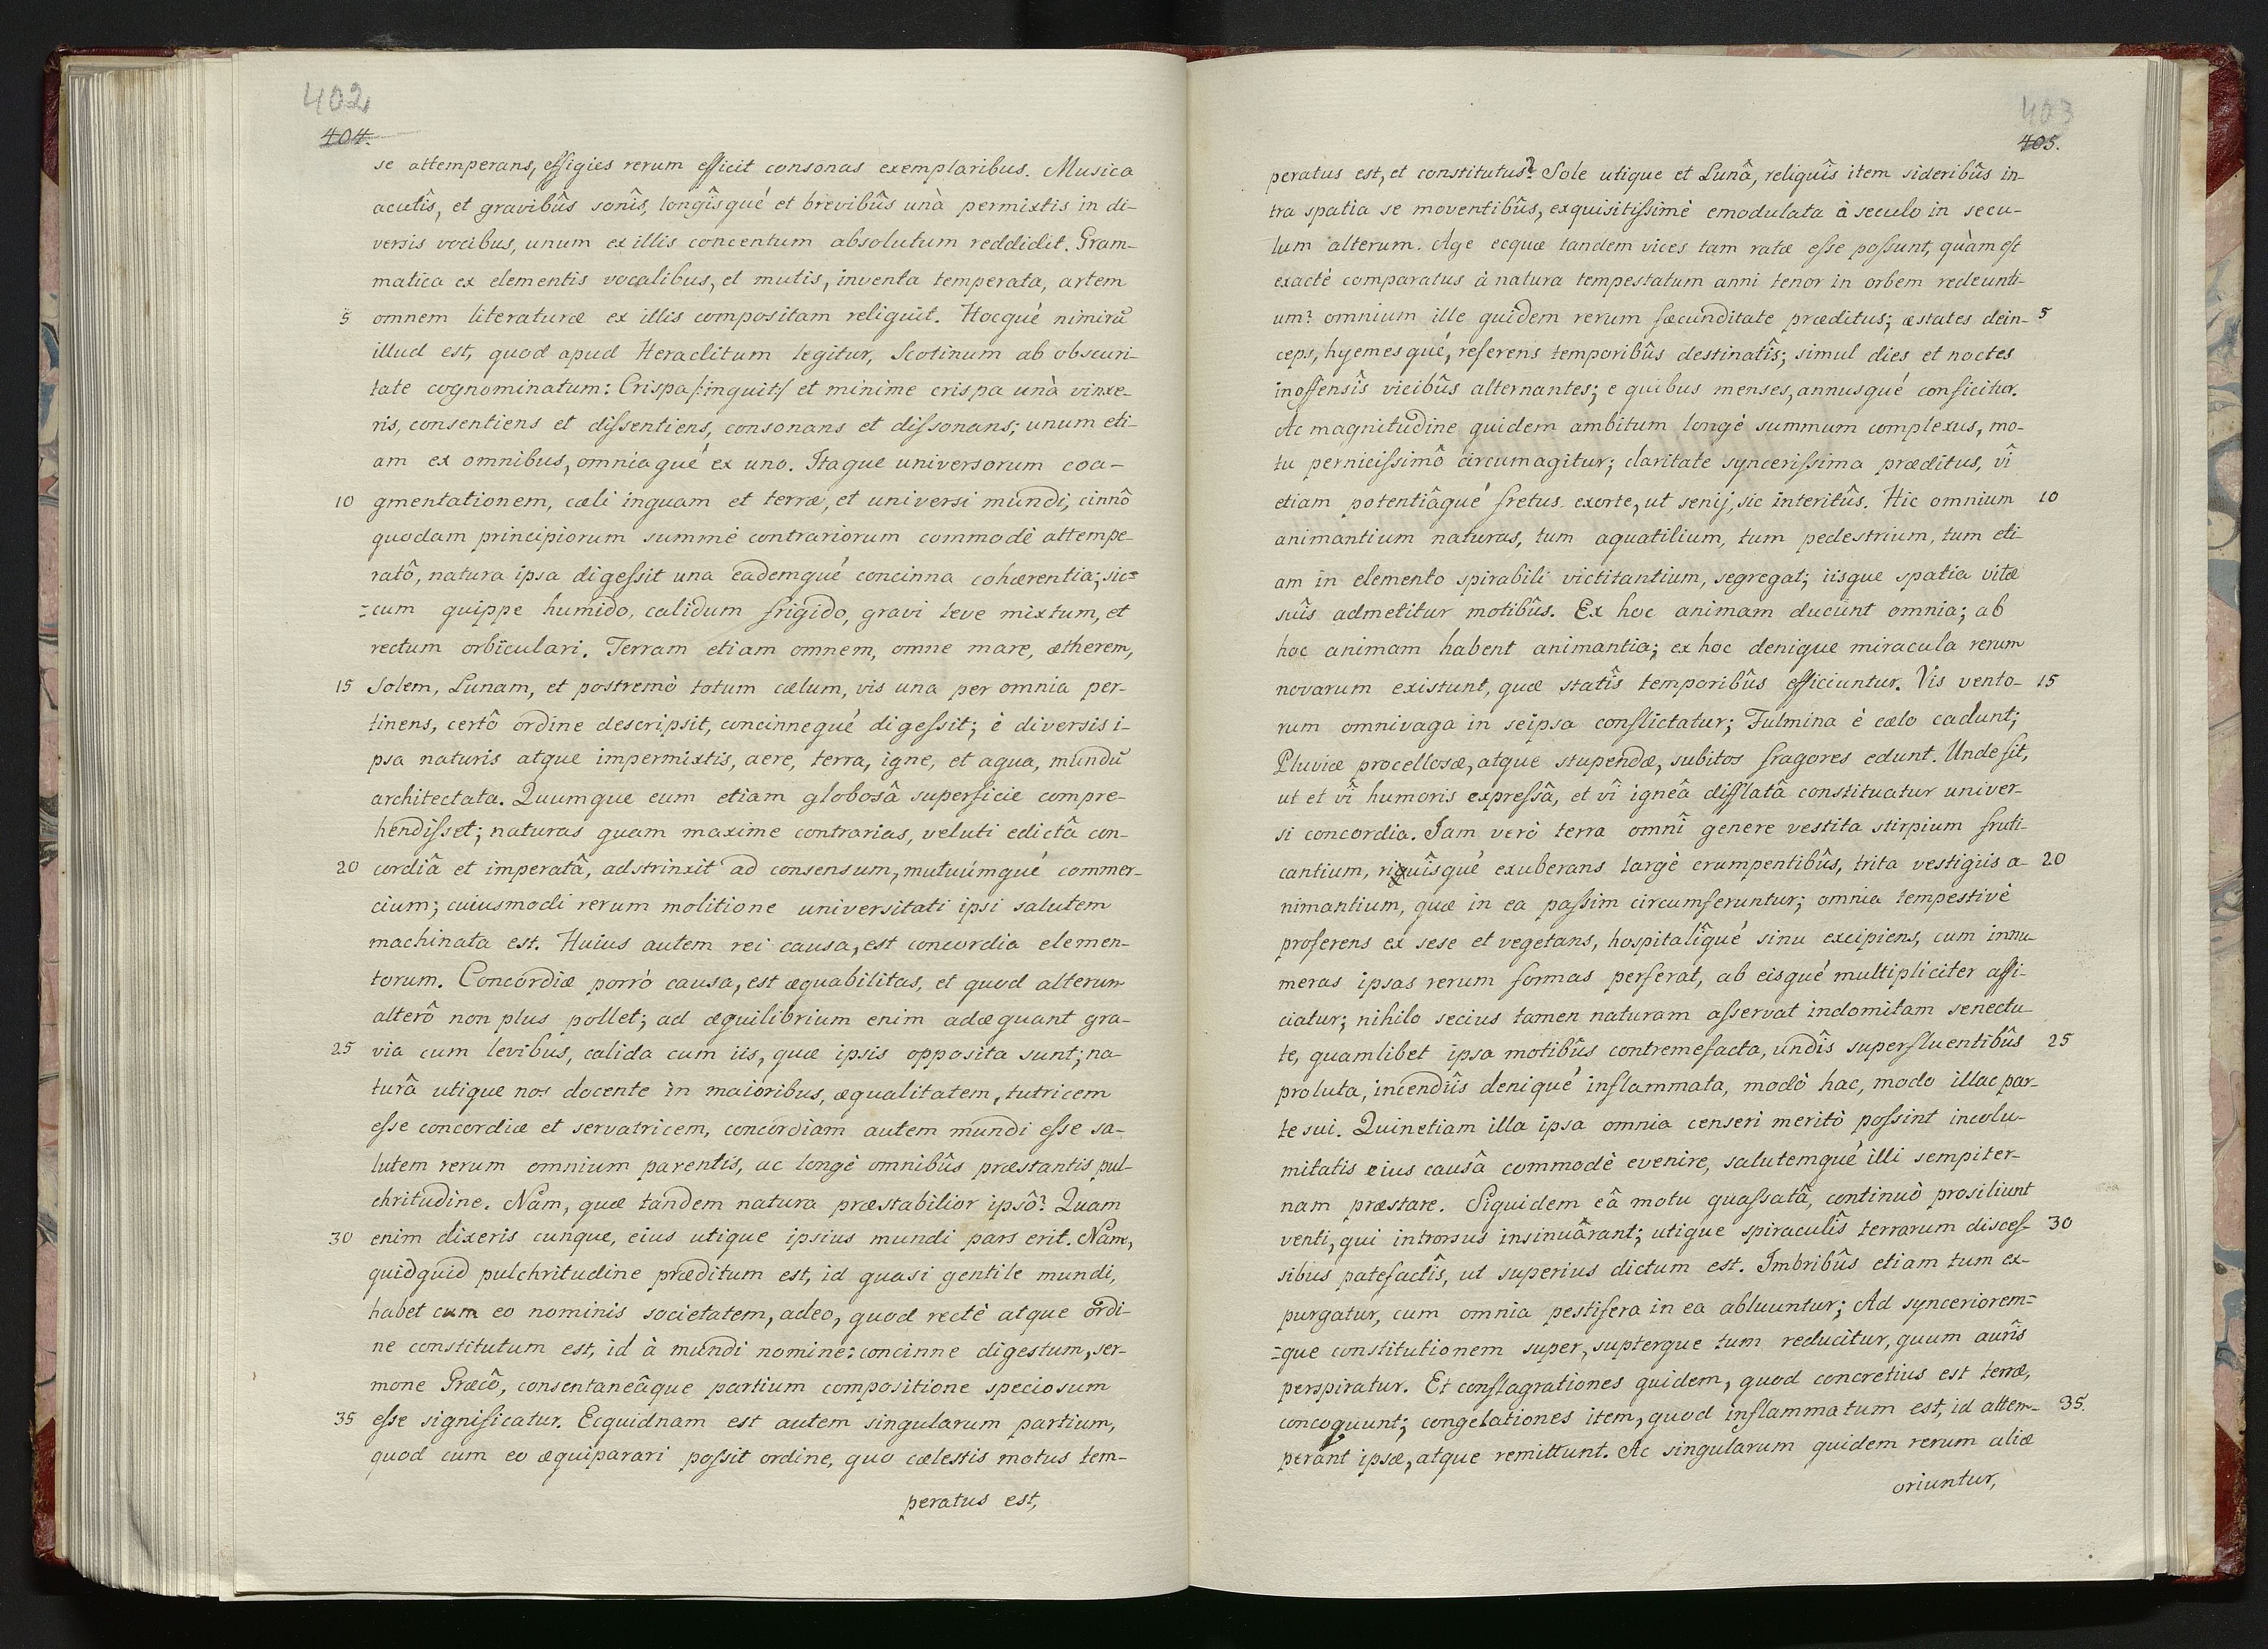 402
404.
se attemperans, effigies rerum efficit consonas exemplaribus. Musica
acutîs, et gravibûs sonîs, longîsqué et brevibûs unà permixtis in di-
versis vocibus, unum ex illis concentum absolutum reddidit. Gram-
matica ex elementis vocalibus, et mutis, inventa temperata, artem
5 omnem literaturæ ex illis compositam reliquit. Hocqué nimirũ
illud est, quod apud Heraclitum legitur, Scotinum ab obscuri-
tate cognominatum: Crispa /:inquit:/ et minime crispa unà vinxe-
ris, consentiens et dissentiens, consonans et dissonans; unum eti-
am ex omnibus, omniaqué ex uno. Itaque universorum coa-
10 gmentationem, cæli inquam et terræ, et universi mundi, cinnô
quodam principiorum summè contrariorum commodè attempe-
ratô, natura ipsa digessit una eademqué concinna cohærentia; sic=
=cum quippe humido, calidum frigido, gravi leve mixtum, et
rectum orbiculari. Terram etiam omnem, omne mare, ætherem,
15 Solem, Lunam, et postremò totum cælum, vis una per omnia per-
tinens, certô ordine descripsit, concinnequé digessit; è diversis i-
psa naturis atque impermixtis, aere, terra, igne, et aqua, mundũ
architectata. Quumque eum etiam globosâ superficie compre-
hendisset; naturas quam maxime contrarias, veluti edictâ con-
20 cordiâ et imperatâ, adstrinxit ad consensum, mutuúmqué commer-
cium; cuiusmodi rerum molitione universitati ipsi salutem
machinata est. Huius autem rei causa, est concordia elemen-
torum. Concordiæ porrò causa, est æquabilitas, et quod alterum
alterô non plus pollet; ad æquilibrium enim adæquant gra-
25 via cum levibus, calida cum iis, quæ ipsis opposita sunt; na-
turâ utique nos docente in maioribus, æqualitatem, tutricem
esse concordiæ et servatricem, concordiam autem mundi esse sa-
lutem rerum omnium parentis, ac longè omnibûs præstantis pul-
chritudine. Nam, quæ tandem natura præstabilior ipsô? Quam
30 enim dixeris cunque, eius utique ipsius mundi pars erit. Nam,
quidquid pulchritudine præditum est, id quasi gentile mundi,
habet cum eo nominis societatem, adeo, quod rectè atque ordi-
ne constitutum est, id à mundi nomine: concinne digestum, ser-
mone Græcô, consentaneâque partium compositione speciosum
35 esse significatur. Ecquidnam est autem singularum partium,
quod cum eo æquiparari possit ordine, quo cælestis motus tem-
peratus est,
403
405.
peratus est, et constitutus? Sole utique et Lunâ, reliquîs item sideribûs in-
tra spatia se moventibûs, exquisitissimè emodulata à seculo in secu-
lum alterum. Age ecquæ tandem vices tam ratæ esse possunt, quàm est
exactè comparatus à natura tempestatum anni tenor in orbem redeunti-
um? omnium ille quidem rerum fæcunditate præditus; æstates dein- 5
ceps, hyemesqué, referens temporibûs destinatîs; simul dies et noctes
inoffensîs vicibûs alternantes; e quibus menses, annusqué conficitur.
Ac magnitudine quidem ambitum longè summum complexus, mo-
tu pernicissimô circumagitur; claritate syncerissima præditus, vî
etiam potentiâqué fretus exorte, ut senij, sic interitûs. Hic omnium 10
animantium naturas, tum aquatilium, tum pedestrium, tum eti-
am in elemento spirabili victitantium, segregat; iisque spatia vitæ
suîs admetitur motibûs. Ex hoc animam ducunt omnia; ab
hoc animam habent animantia; ex hoc denique miracula rerum
novarum existunt, quæ statîs temporibûs efficiuntur. Vis vento- 15
rum omnivaga in seipsa conflictatur; Fulmina è cælo cadunt;
Pluviæ procellosæ, atque stupendæ, subitos fragores edunt. Unde fit,
ut et vî humoris expressâ, et vî igneâ difflatâ constituatur univer-
si concordia. Jam verò terra omnî genere vestita stirpium fruti-
cantium, riguîsqué exuberans largè erumpentibûs, trita vestigiis a- 20
nimantium, quæ in ea passim circumferuntur; omnia tempestivè
proferens ex sese et vegetans, hospitalîqué sinu excipiens, cum innu-
meras ipsas rerum formas perferat, ab eisqué multipliciter affi-
ciatur; nihilo secius tamen naturam asservat indomitam senectu-
te, quamlibet ipsa motibûs contremefacta, undîs superfluentibûs 25
proluta, incendiîs deniqué inflammata, modò hac, modo illac par-
te sui. Quinetiam illa ipsa omnia censeri meritò possint incolu-
mitatis eius causâ commodè evenire, salutemqué illi sempiter-
nam præstare. Siquidem eâ motu quassatâ, continuò prosiliunt
venti, qui introrsus insinuârant; utique spiraculîs terrarum disces- 30
sibus patefactîs, ut superius dictum est. Imbribûs etiam tum ex-
purgatur, cum omnia pestifera in ea abluuntur; Ad synceriorem=
=que constitutionem super, supterque tum reducitur, quum aurîs
perspiratur. Et conflagrationes quidem, quod concretius est terræ,
concoquunt; congelationes item, quod inflammatum est, id attem- 35.
perant ipsæ, atque remittunt. Ac singularum quidem rerum aliæ
oriuntur,